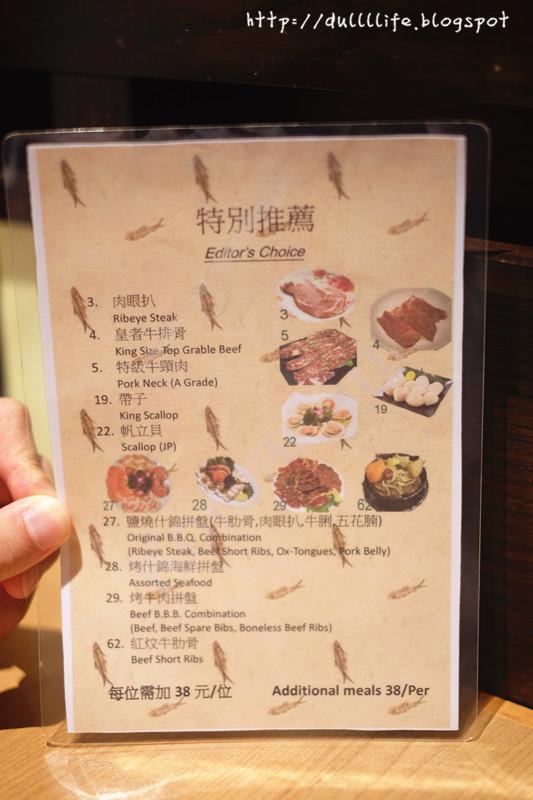 http://dullllife.blogspot
特別推薦
Editor's Choice
3. 肉眼扒
Ribeye Steak
4. 皇者牛排骨
King Size Top Grable Beef
5. 特級牛頸肉
Pork Neck (A Grade)
19. 帶子
King Scallop
22. 帆立貝
Scallop (JP)
3
4
5
19
22
27
28
29
62
27. 鹽燒什錦拼盤(牛肋骨,肉眼扒,牛脷,五花腩)
Original B.B.Q. Combination
(Ribeye Steak, Beef Short Ribs, Ox-Tongues, Pork Belly)
28. 烤什錦海鮮拼盤
Assorted Seafood
29. 烤牛肉拼盤
Beef B.B.B. Combination
(Beef, Beef Spare Bibs, Boneless Beef Ribs)
62. 紅炆牛肋骨
Beef Short Ribs
每位需加 38 元/位 Additional meals 38/Per